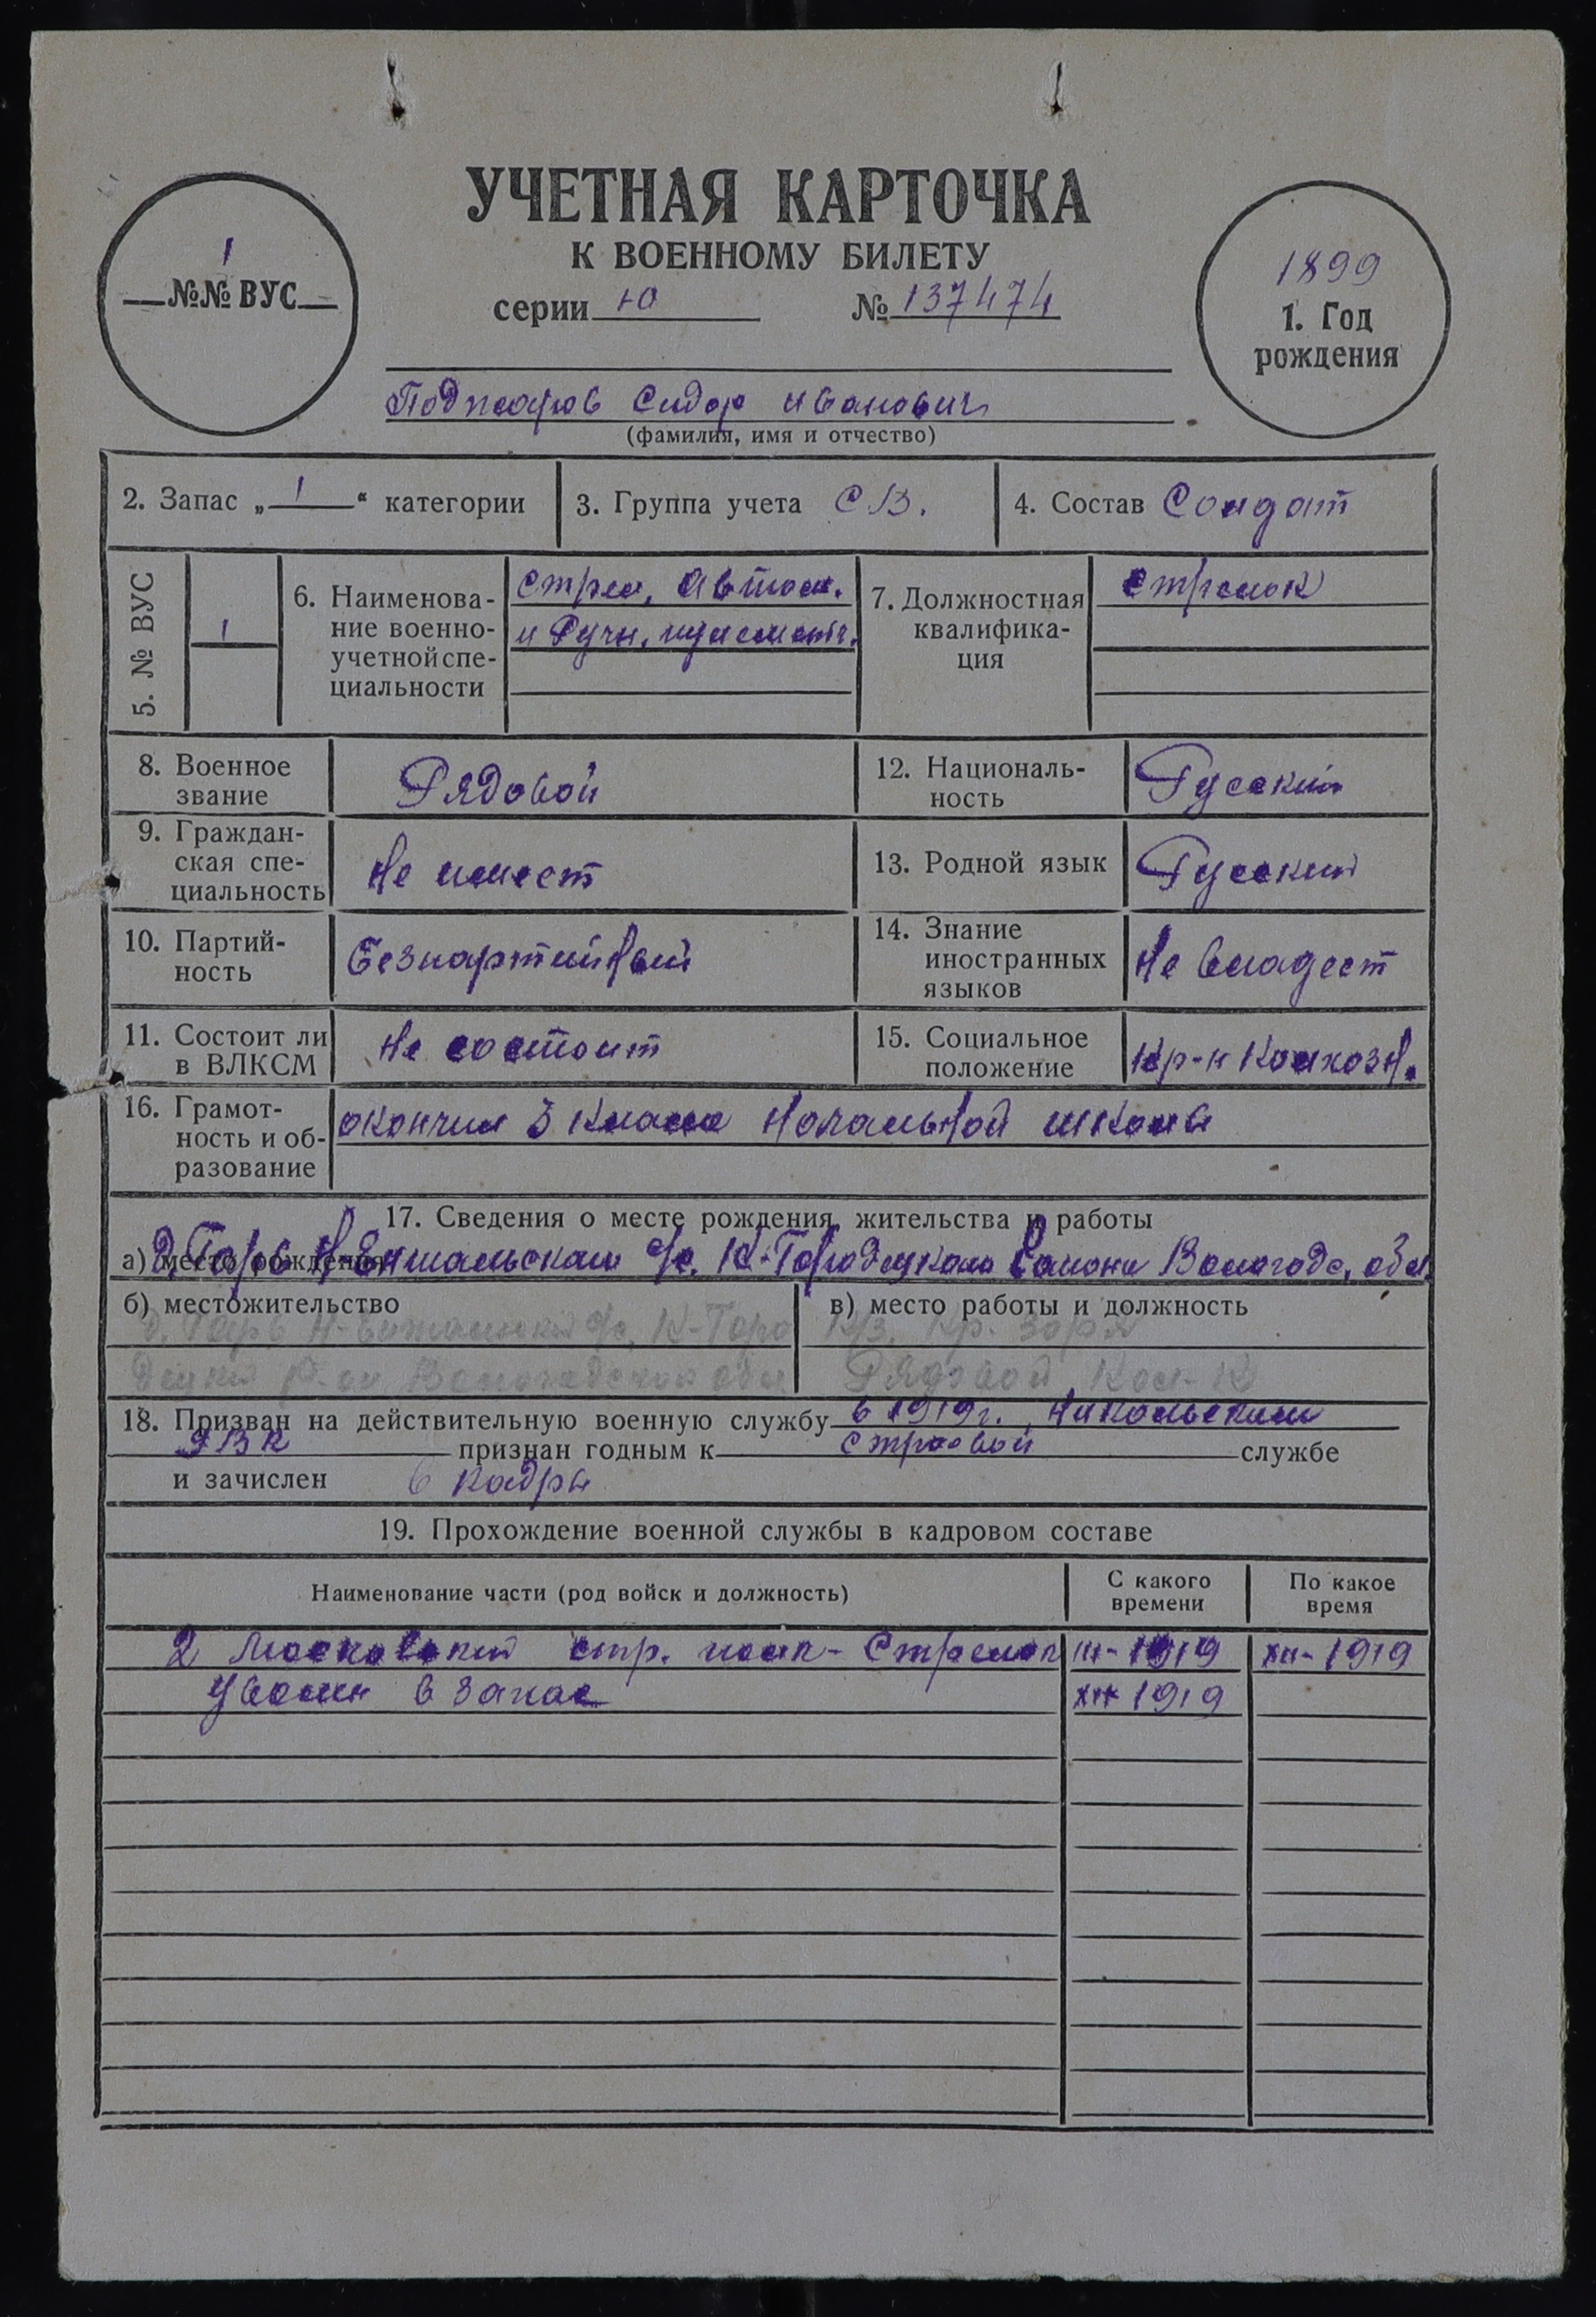 УЧЕТНАЯ КАРТОЧКА
К ВОЕННОМУ БИЛЕТУ
1
№№ ВУС
серии Ю № 137474
1899
1. Год рождения
Поджаров Сидор Иванович
(фамилия, имя и отчество)
2. Запас „1“ категории
3. Группа учета СВ.
4. Состав Солдат
5. № ВУС
1
6. Наименова-
ние военно-
учетной спе-
циальности
Стрел, Автом.
и Ручн. пулеметч.
7. Должностная
квалифика-
ция
стрелок
8. Военное
звание
Рядовой
12. Националь-
ность
Русский
9. Граждан-
ская спе-
циальность
Не имеет
13. Родной язык
Русский
10. Партий-
ность
Безпартийный
14. Знание
иностранных
языков
Не владеет
11. Состоит ли
в ВЛКСМ
Не состоит
15. Социальное
положение
кр-н колхозн.
16. Грамот-
ность и об-
разование
окончил 3 класса начальной школы
17. Сведения о месте рождения, жительства и работы
а) место рождения Д. Гарь Н-Енгальскаго с/с. К-Городецкого района Вологодс. обл.
б) местожительство
д. Гарь Н-Енгальский с/с, К-Горо
децкий р-он Вологодской обл
в) место работы и должность
К/з. Кр. Заря
Рядовой кол-к
18. Призван на действительную военную службу в 1919 г. Никольским
РВК признан годным к строевой службе
и зачислен в кадры
19. Прохождение военной службы в кадровом составе
Наименование части (род войск и должность)
С какого
времени
По какое
время
2 Московский стр. полк - Стрелок III - 1919 XII - 1919
Уволен в запас XII 1919